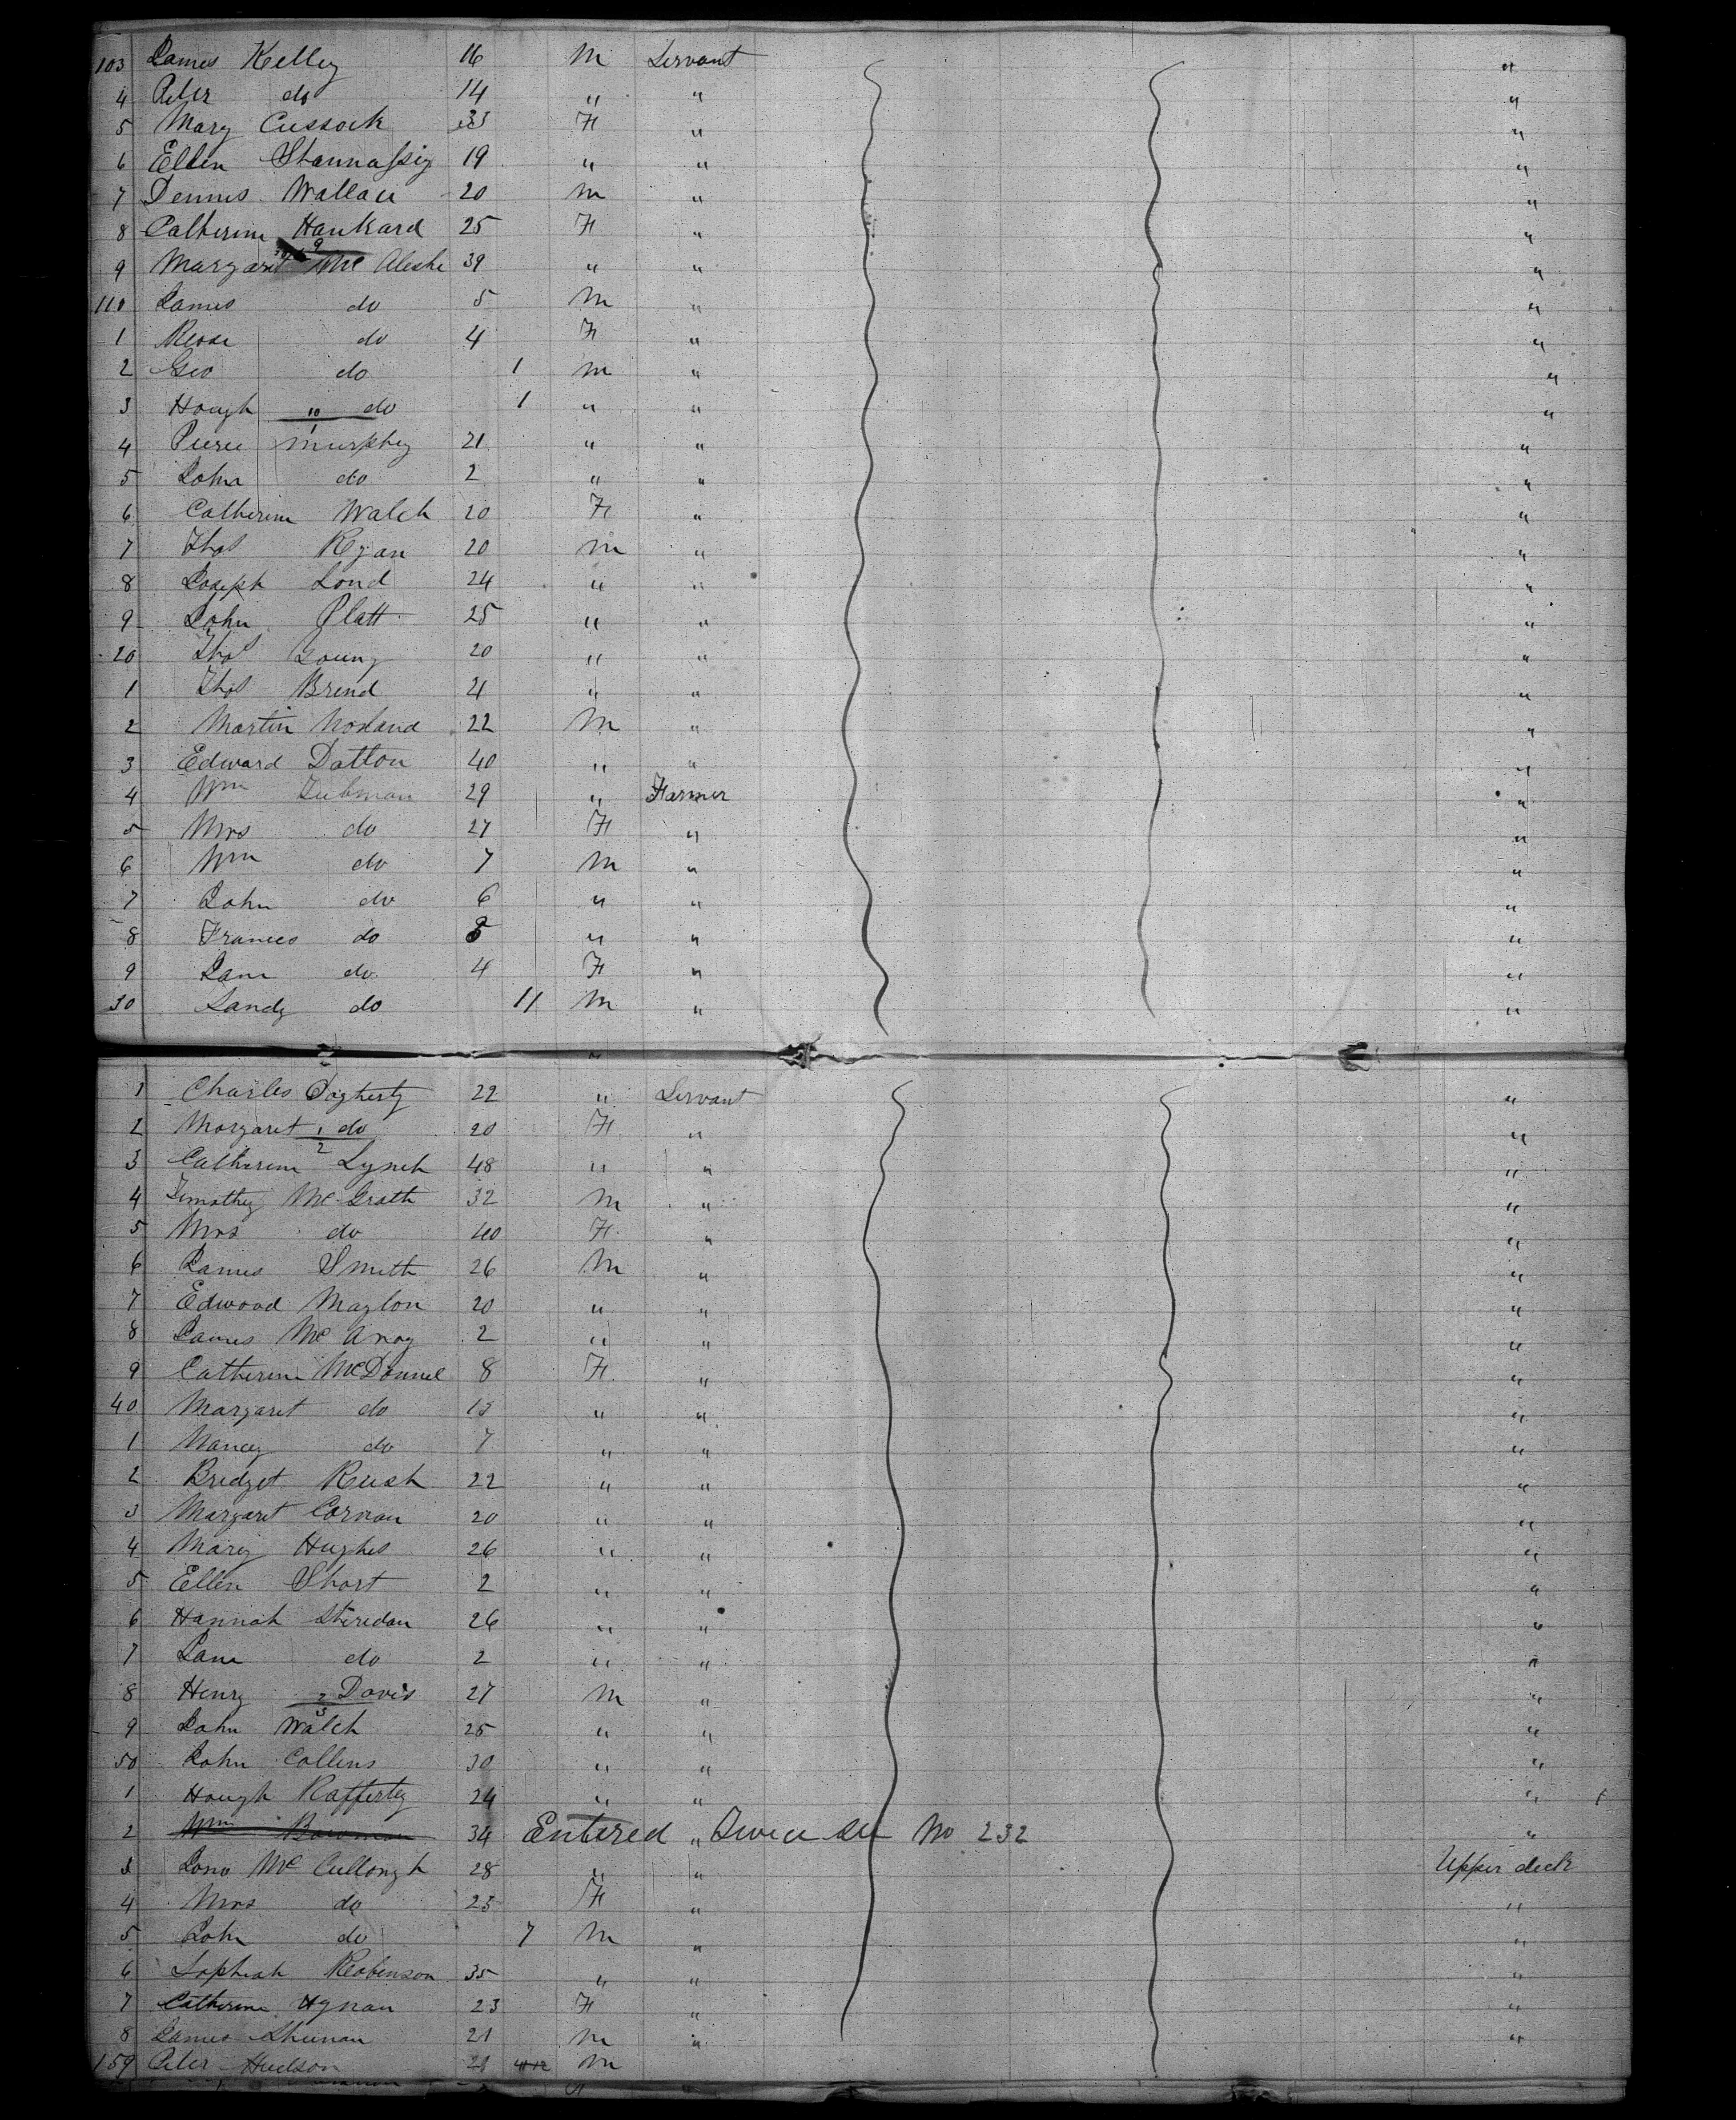 103 James Kelley 16 M Servant "
4 Peter do 14 " " "
5 Mary Cussock 33 F " "
6 Ellen 19 " " "
7 Dennis Wallace 20 M " "
8 Catherine Hankard 25 F " "
9 Margaret Mc 39 " " "
110 James do 5 M " "
1 Rose do 4 F " "
2 Geo do 1 M " "
3 Hough do 1 " " "
4 Pierce Murphy 21 " " "
5 John do 2 " " "
6 Catherine Walch 20 F " "
7 Thos Ryan 20 M " "
8 Joseph Lond 24 " " "
9 John Platt 25 " " "
20 Thos Young 20 " " "
1 Thos Brend 21 " " "
2 Martin 22 M " "
3 Edward Datton 40 " " "
4 Wm Tubman 29 " Farmer "
5 Mrs do 27 F " "
6 Wm do 7 M " "
7 John do 6 " " "
8 Frances do 5 " " "
9 Jane do 4 F " "
30 Sandy do 11 M " "
1 Charles Dogherty 22 " Servant "
2 Margaret do 20 F " "
3 Catherine Lynch 48 " " "
4 Timothy McGrath 32 M " "
5 Mrs do 40 F " "
6 James Smith 26 M " "
7 Edwood Maylon 20 " " "
8 James Mc Anoy 2 " " "
9 Catherine McDonnel 8 F " "
40 Margaret do 13 " " "
1 Nancy do 7 " " "
2 Bridget Rush 22 " " "
3 Margaret Cornan 20 " " "
4 Mary Hughes 26 " " "
5 Ellen Short 2 " " "
6 Hannah Sheredan 26 " " "
7 Jane do 2 " " "
8 Henry Davis 27 M " "
9 John Walch 25 " " "
50 John Collins 30 " " "
1 Hough Rafferty 24 " " "
2 Wm Bowman 34 Entered " Twice see No 232 "
3 Mc Cullough 28 " " Upper deck
4 Mrs do 23 F " "
5 John do 7 M " "
6 Sophiah Robinson 35 " " "
7 Catherine Hynan 23 F " "
8 James Shunan 21 M " "
159 Peter Hudson 21 M